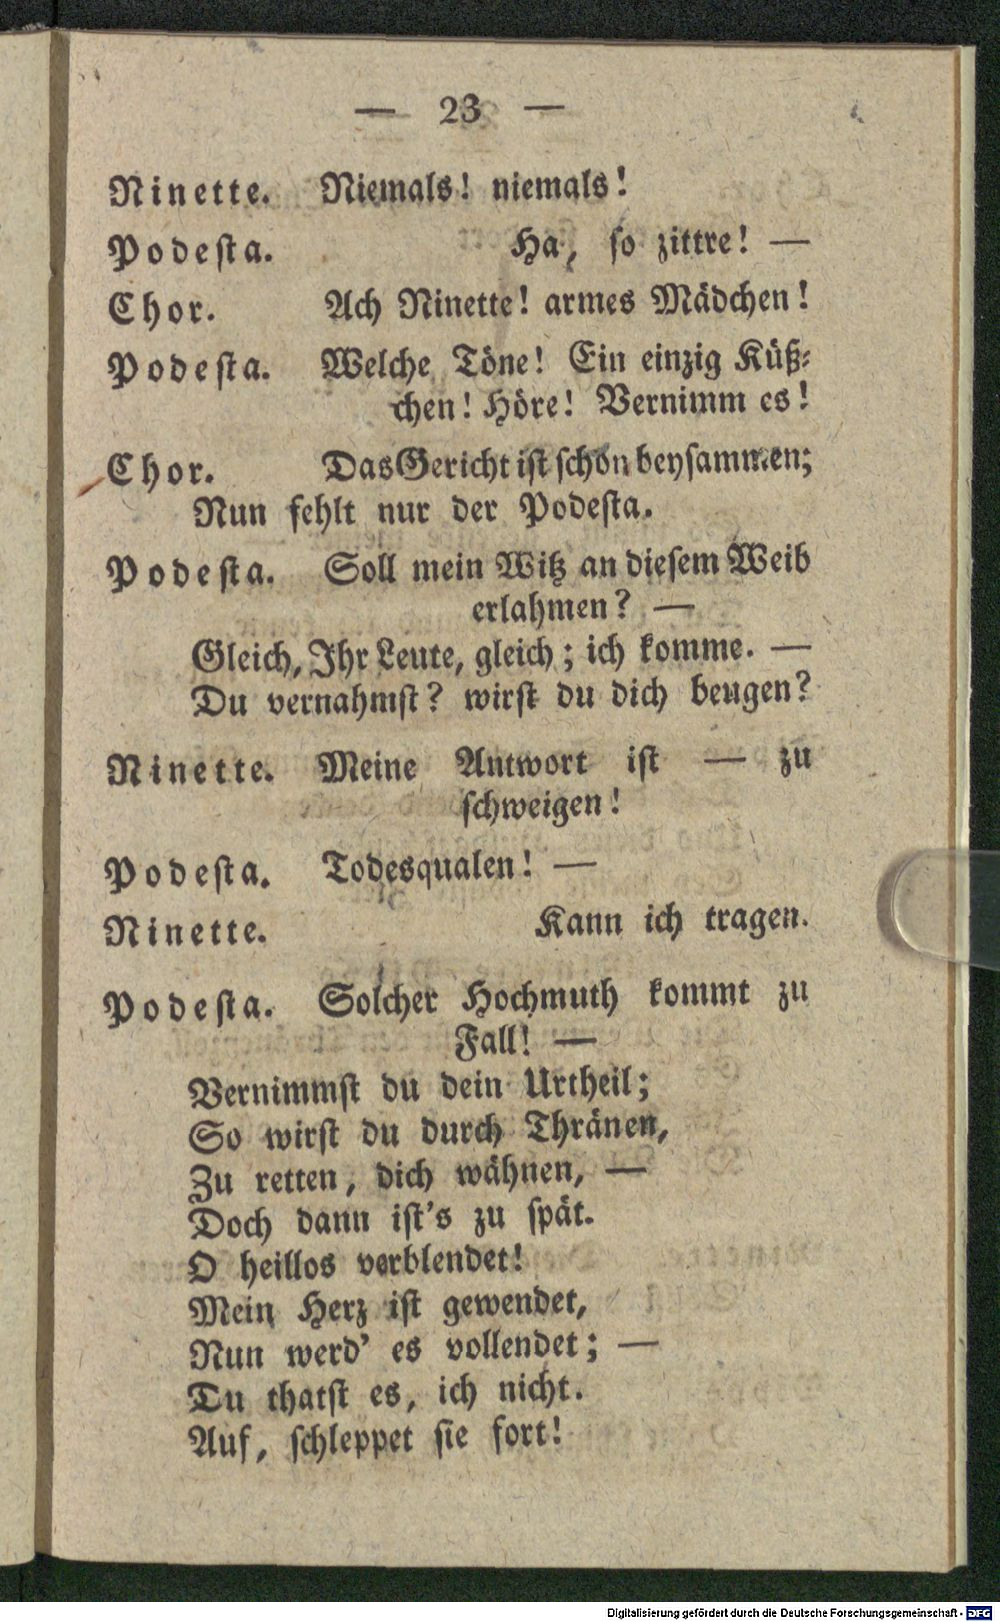 — 23 —
Ninette. Niemals! niemals!
Podesta. Ha, so zittre! —
Chor. Ach Ninette! armes Mädchen!
Podesta. Welche Töne! Ein einzig Küß-
chen! Höre! Vernimm es!
Chor. Das Gericht ist schon beysammen;
Nun fehlt nur der Podesta.
Podesta. Soll mein Witz an diesem Weib
erlahmen? —
Gleich, Ihr Leute, gleich; ich komme. —
Du vernahmst? wirst du dich beugen?
Ninette. Meine Antwort ist — zu
schweigen!
Podesta. Todesqualen! —
Ninette. Kann ich tragen.
Podesta. Solcher Hochmuth kommt zu
Fall! —
Vernimmst du dein Urtheil;
So wirst du durch Thränen,
Zu retten, dich wähnen, —
Doch dann ist's zu spät.
O heillos verblendet!
Mein Herz ist gewendet,
Nun werd' es vollendet; —
Du thatst es, ich nicht.
Auf, schleppet sie fort!
Digitalisierung gefördert durch die Deutsche Forschungsgemeinschaft - DFG